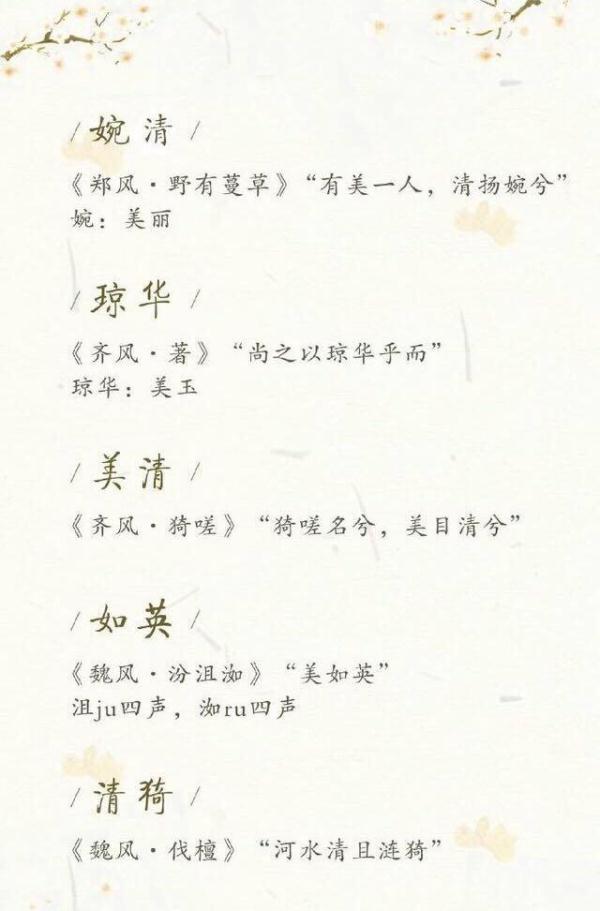 / 婉清 /
《郑风·野有蔓草》“有美一人，清扬婉兮”
婉：美丽
/ 琼华 /
《齐风·著》“尚之以琼华乎而”
琼华：美玉
/ 美清 /
《齐风·猗嗟》“猗嗟名兮，美目清兮”
/ 如英 /
《魏风·汾沮洳》“美如英”
沮ju四声，洳ru四声
/ 清猗 /
《魏风·伐檀》“河水清且涟猗”